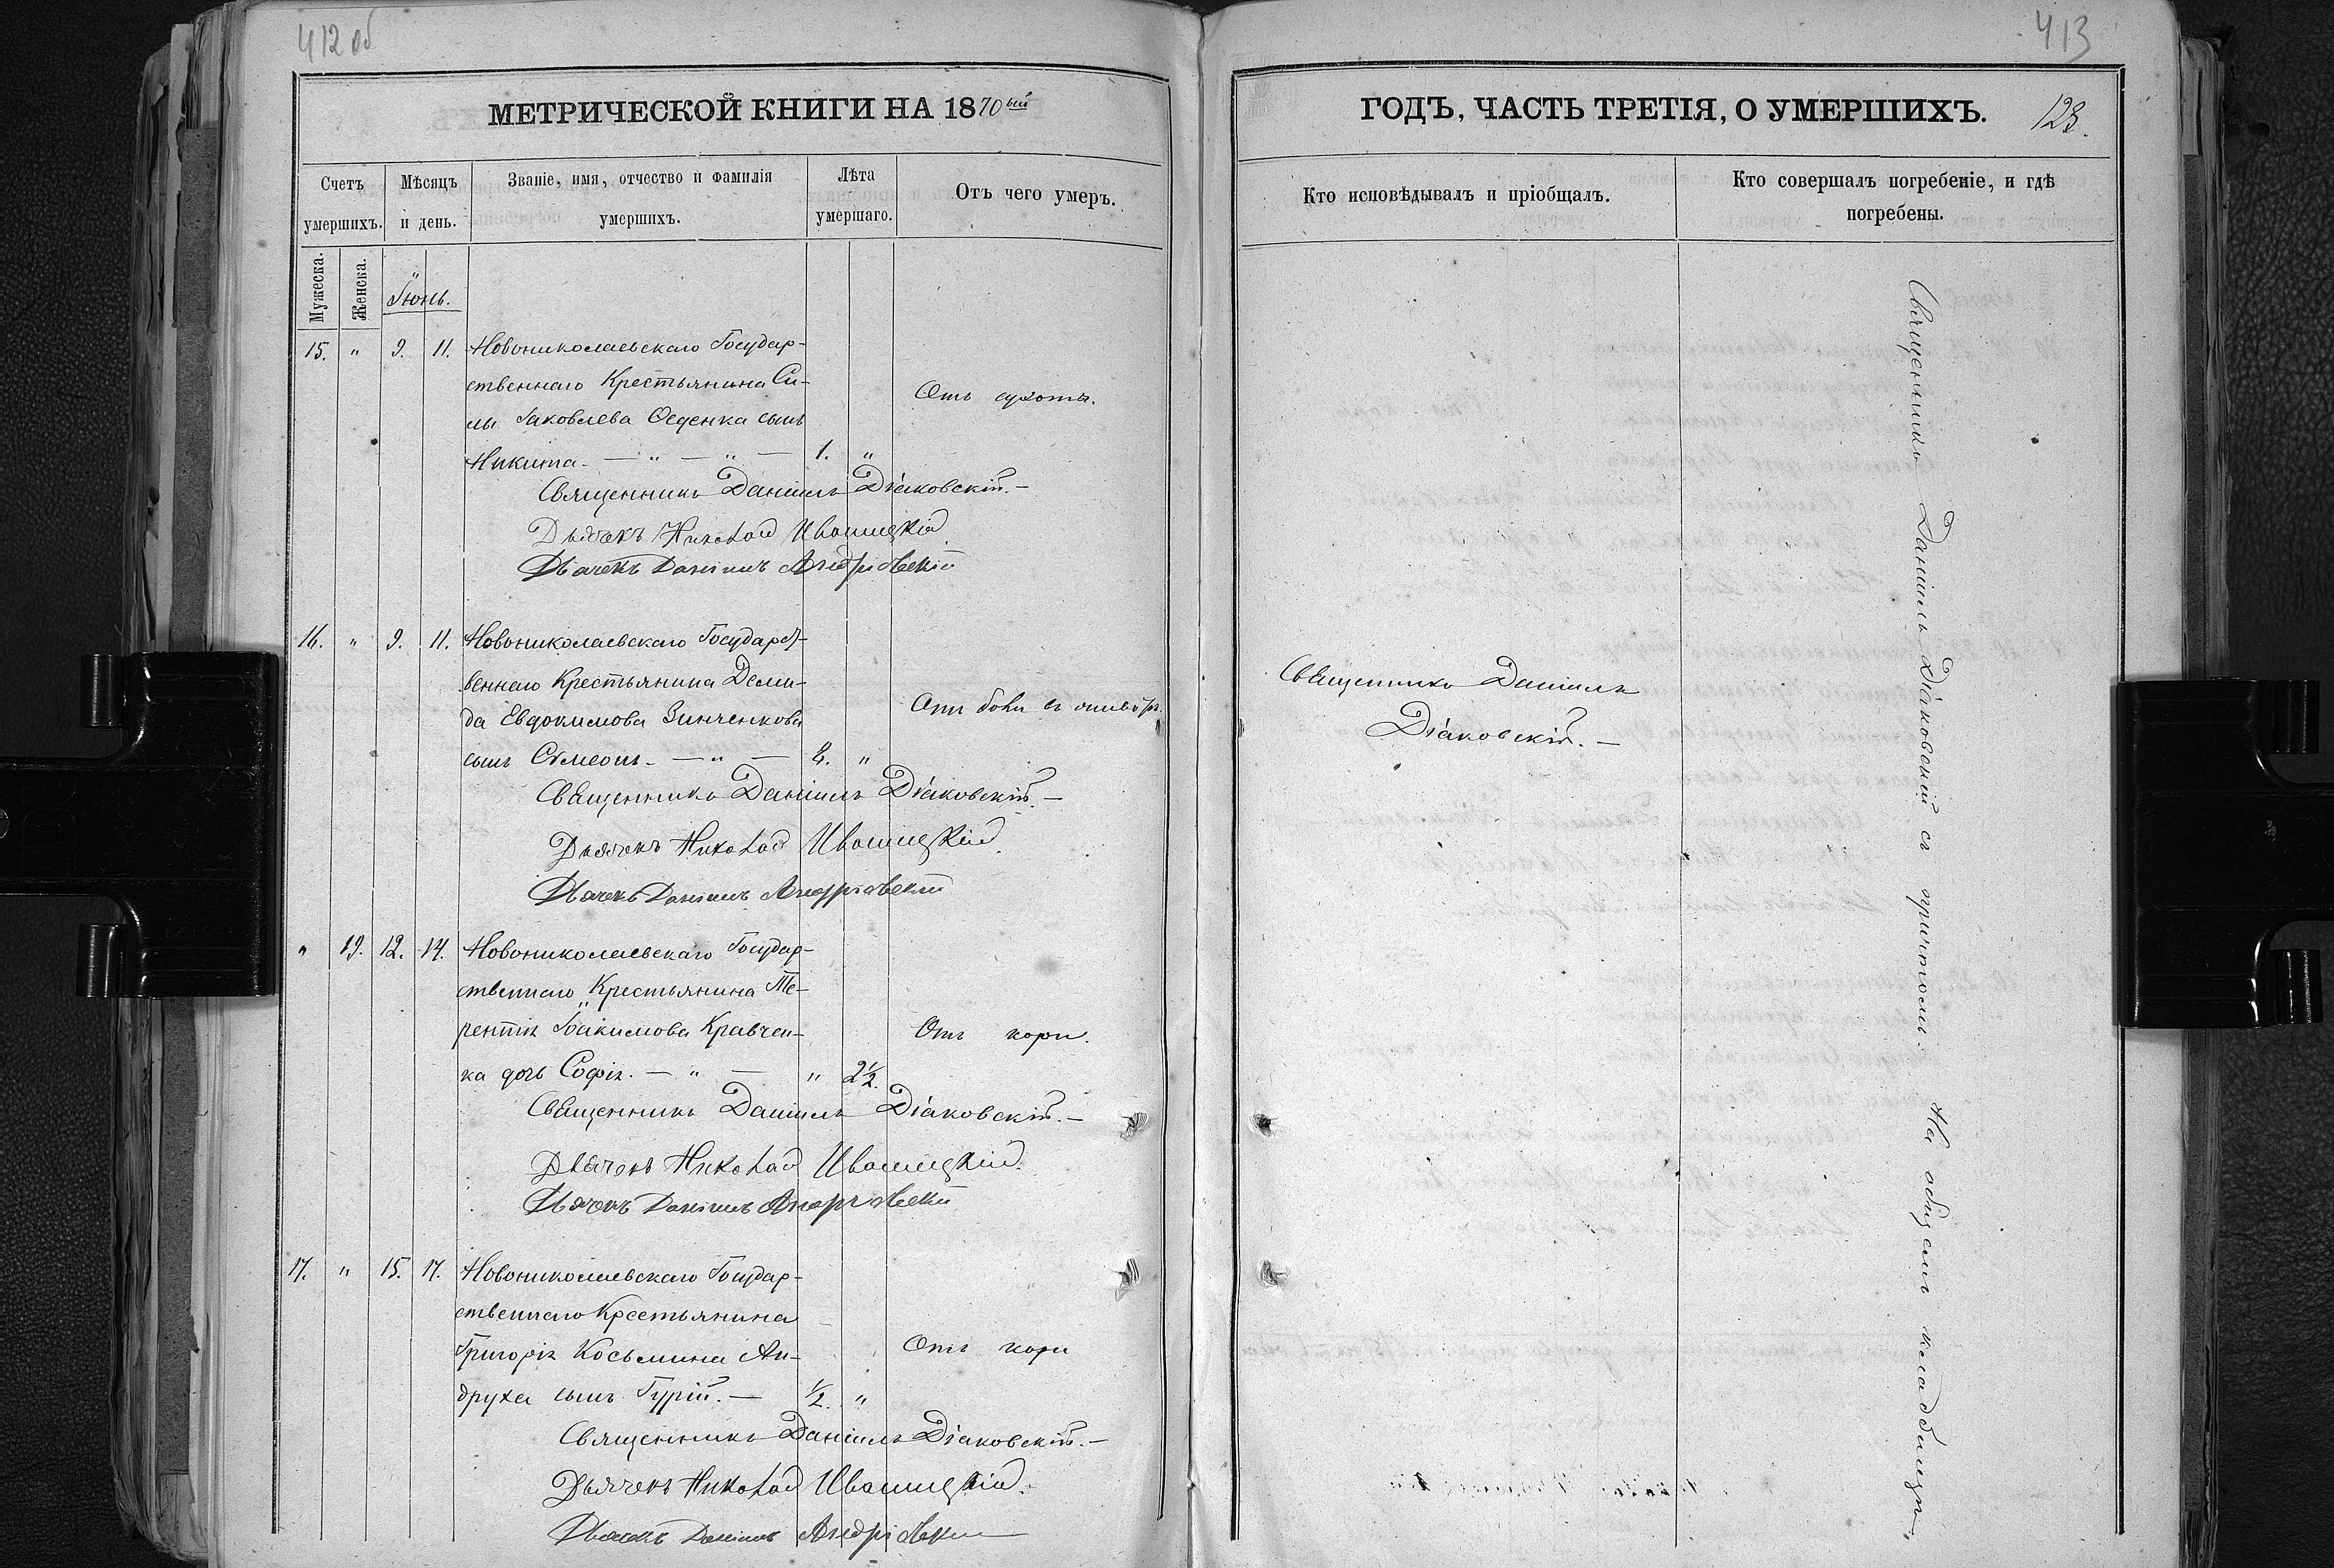 412 об
МЕТРИЧЕСКОЙ КНИГИ НА 1870ый
Счетъ умершихъ.
Мѣсяцъ и день.
Званіе, имя, отчество и фамилія умершихъ.
Лѣта умершаго.
Отъ чего умеръ.
Мужеска.
Женска.
Іюнь.
15. " 9. 11. Новониколаевскаго Государ-
ственнаго Крестьянина Си-
лы Іаковлева Оседенка сынъ
Никита. — " — " — 1. "
Отъ сухоты.
Священникъ Даніилъ Діаковскій. —
Дьячекъ Николай Ивашицкій
Дьячекъ Даніилъ Андріевскій
16. " 9. 11. Новониколаевскаго Государст-
веннаго Крестьянина Деми-
да Евдокимова Зинченкова
сынъ Сѵмеонъ. — " — 2. "
Отъ боли въ
Священникъ Даніилъ Діаковскій. —
Дьячекъ Николай Ивашицкій.
Дьячекъ Даніилъ Андріевскій
" 19. 12. 14. Новониколаевскаго Государ-
ственнаго Крестьянина Те-
рентія Іоакимова Кравчен-
ка дочь Софія. — " — " 2½.
Отъ кори.
Священникъ Даніилъ Діаковскій. —
Дьячекъ Николай Ивашицкій.
Дьячекъ Даніилъ Андріевскій
17. " 15. 17. Новониколаевскаго Государ-
ственнаго Крестьянина
Григорія Косьмина Ан-
друха сынъ Гурій. — ½. "
Отъ кори
Священникъ Даніилъ Діаковскій. —
Дьячекъ Николай Ивашицкій.
Дьячекъ Даніилъ Андріевскій
413
ГОДЪ, ЧАСТЬ ТРЕТІЯ, О УМЕРШИХЪ.
123.
Кто исповѣдывалъ и пріобщалъ.
Кто совершалъ погребеніе, и гдѣ
погребены.
Священникъ Даніилъ
Діаковскій. —
Священникъ Даніилъ Діаковскій съ причтомъ. На общемъ кладбищѣ.